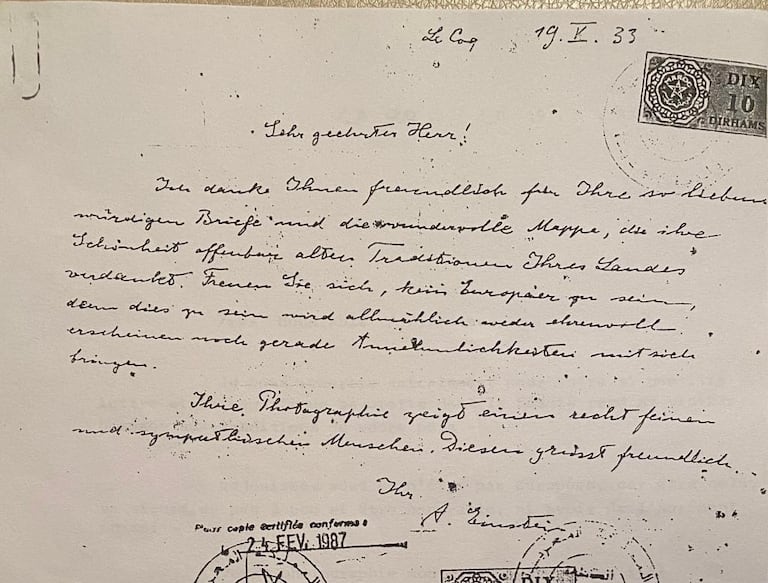 Le Coq 19. V. 33
DIX
10
DIRHAMS
Sehr geehrter Herr!
Ich danke Ihnen freundlich für Ihre so liebens
würdigen Briefe und die wundervolle Mappe, die ihre
Schönheit offenbar alten Traditionen Ihres Landes
verdankt. Freuen Sie sich, kein Europäer zu sein,
denn dies zu sein wird allmählich weder ehrenvoll
erscheinen noch gerade Annehmlichkeiten mit sich
bringen.
Ihre Photographie zeigt einen recht feinen
und sympathischen Menschen. Diesen grüsst freundlich
Ihr
A. Einstein
Pour copie certifiée conforme
24 FEV. 1987
DIX